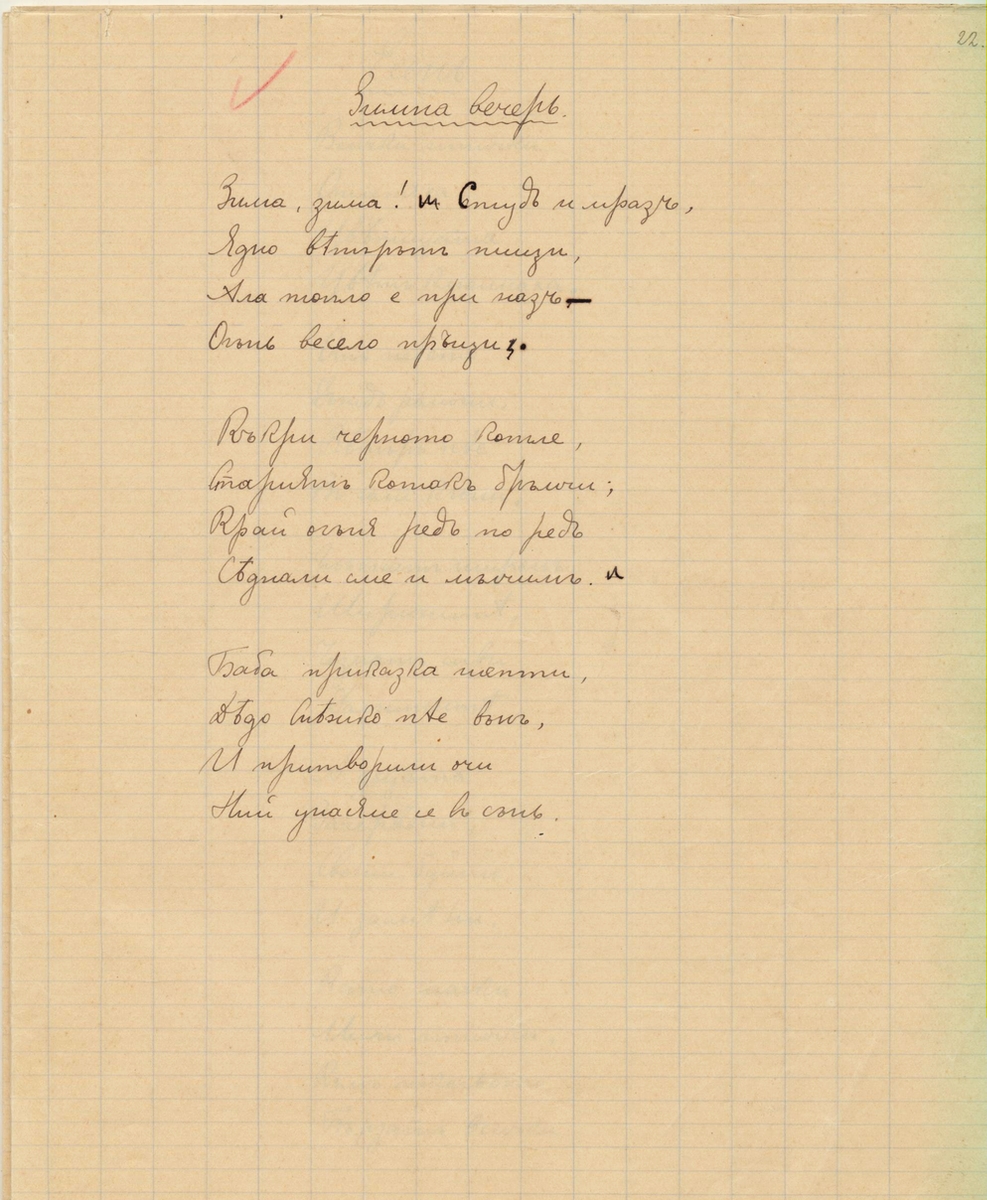 22.
Зимна вечерь.
Зима, зима! Студъ и мразъ,
Ядно вѣтрътъ пищи,
Ала топло е при назъ, —
Огънь весело пръщи.
Къкри черното котле,
Стариятъ котакъ бръмчи;
Край огъня редъ по редъ
Сѣднали сме и мълчимъ.
Баба приказка шепти,
Дѣдо Снѣжко пѣе вънъ,
И притворили очи
Ний унасяме се въ сънь.